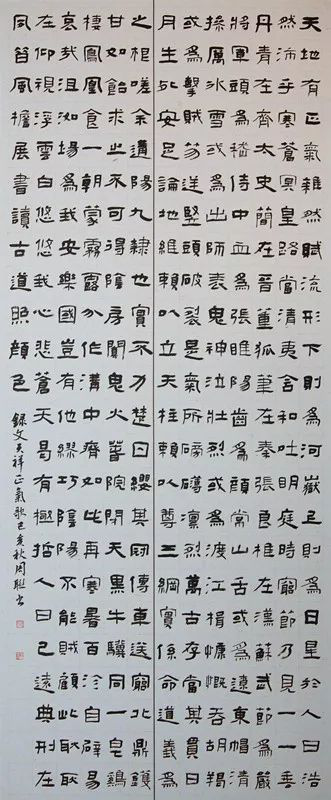 天地有正氣雜然賦流形下則為河嶽上則為日星於人曰浩
然沛乎塞蒼冥皇路當清夷含和吐明庭時窮節乃見一一垂
丹青在齊太史簡在晉董狐筆在秦張良椎在漢蘇武節為嚴
將軍頭為嵇侍中血為張睢陽齒為顏常山舌或為遼東帽清
操厲冰雪或為出師表鬼神泣壯烈或為渡江楫慷慨吞胡羯
或為擊賊笏逆豎頭破裂是氣所磅礴凜烈萬古存當其貫日
月生死安足論地維賴以立天柱賴以尊三綱實係命道義為
之根嗟余遘陽九隸也實不力楚囚纓其冠傳車送窮北鼎鑊
甘如飴求之不可得陰房闃鬼火春院閟天黑牛驥同一皂雞
棲鳳凰食一朝蒙霧露分作溝中瘠如此再寒暑百沴自辟易
哀哉沮洳場為我安樂國豈有他繆巧陰陽不能賊顧此耿耿
在仰視浮雲白悠悠我心悲蒼天曷有極哲人日已遠典刑在
夙昔風檐展書讀古道照顏色
錄文天祥正氣歌己亥秋周聯書